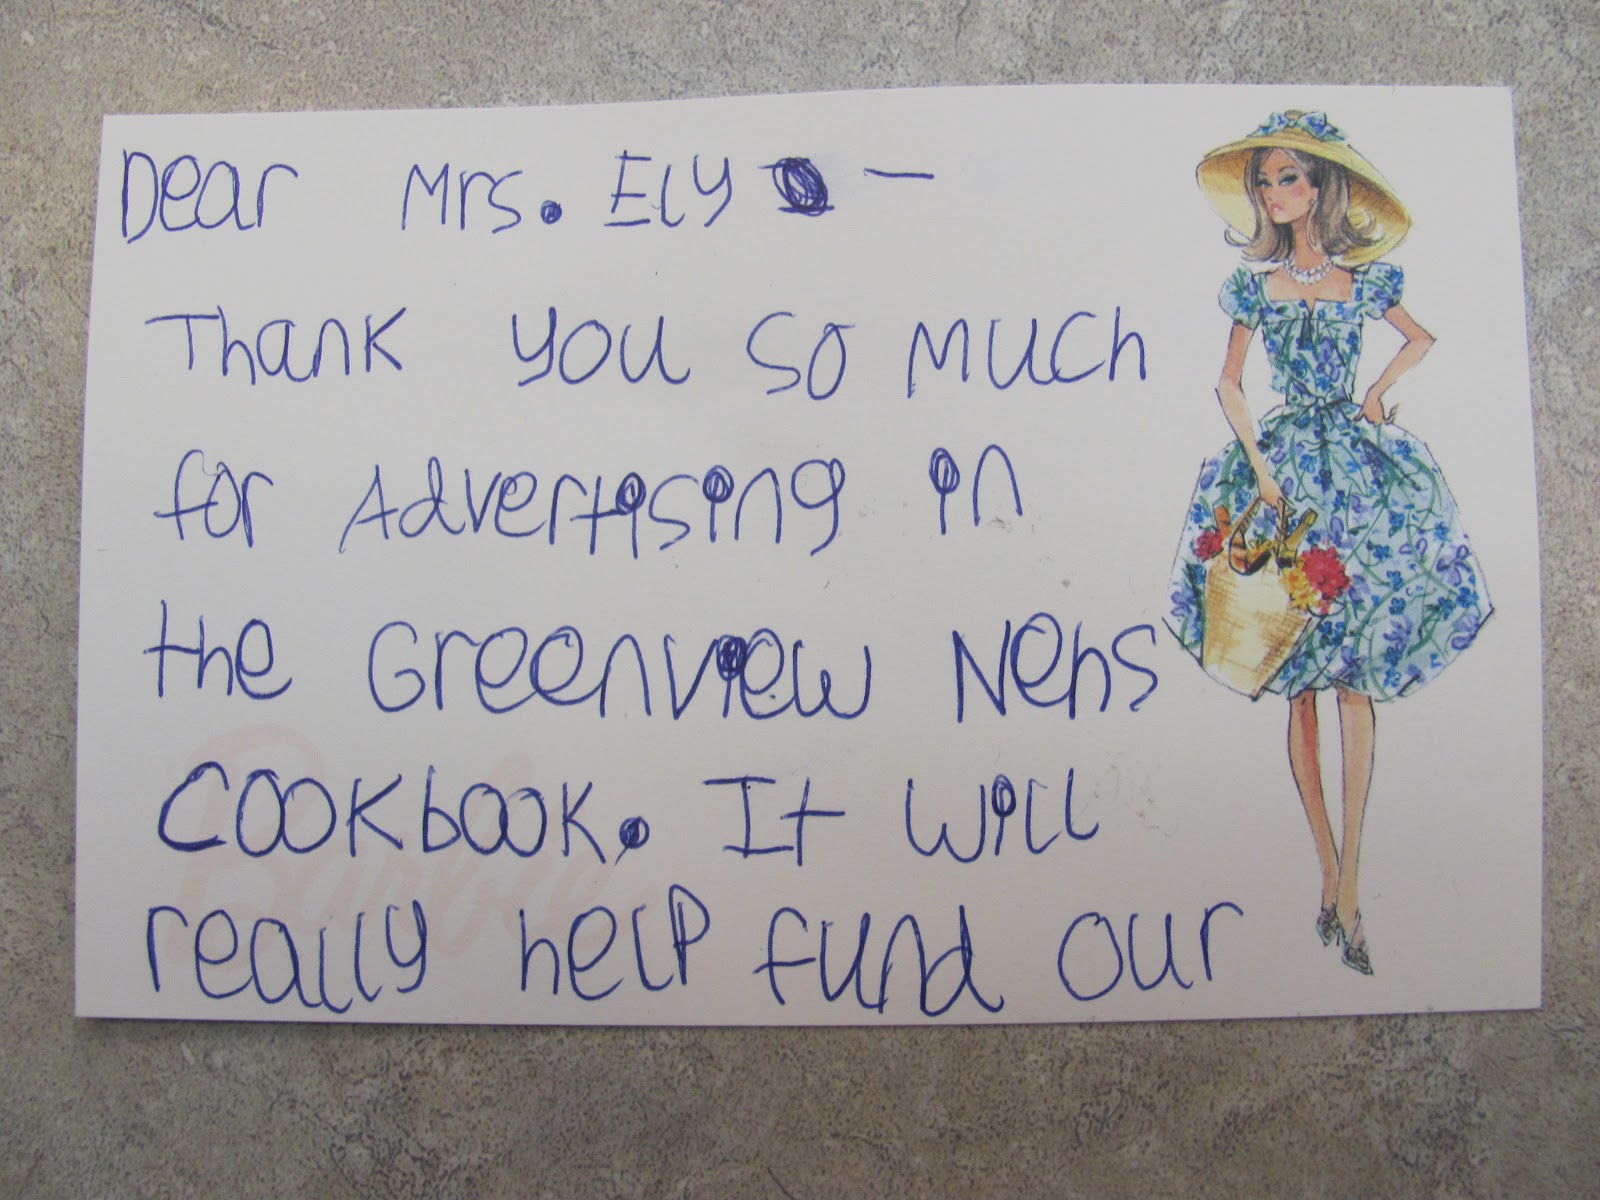 Dear Mrs. Ely —
Thank you so much
for Advertising in
the Greenview Nehs
Cookbook. It will
really help fund our
Barbie